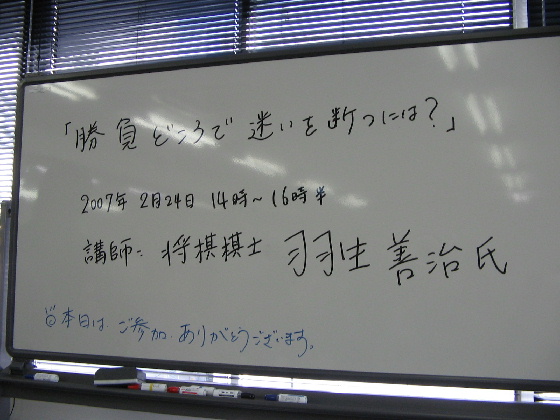 「勝負どころで迷いを断つには?」
2007年 2月24日 14時~16時半
講師: 将棋棋士 羽生善治氏
本日は、ご参加ありがとうございます。